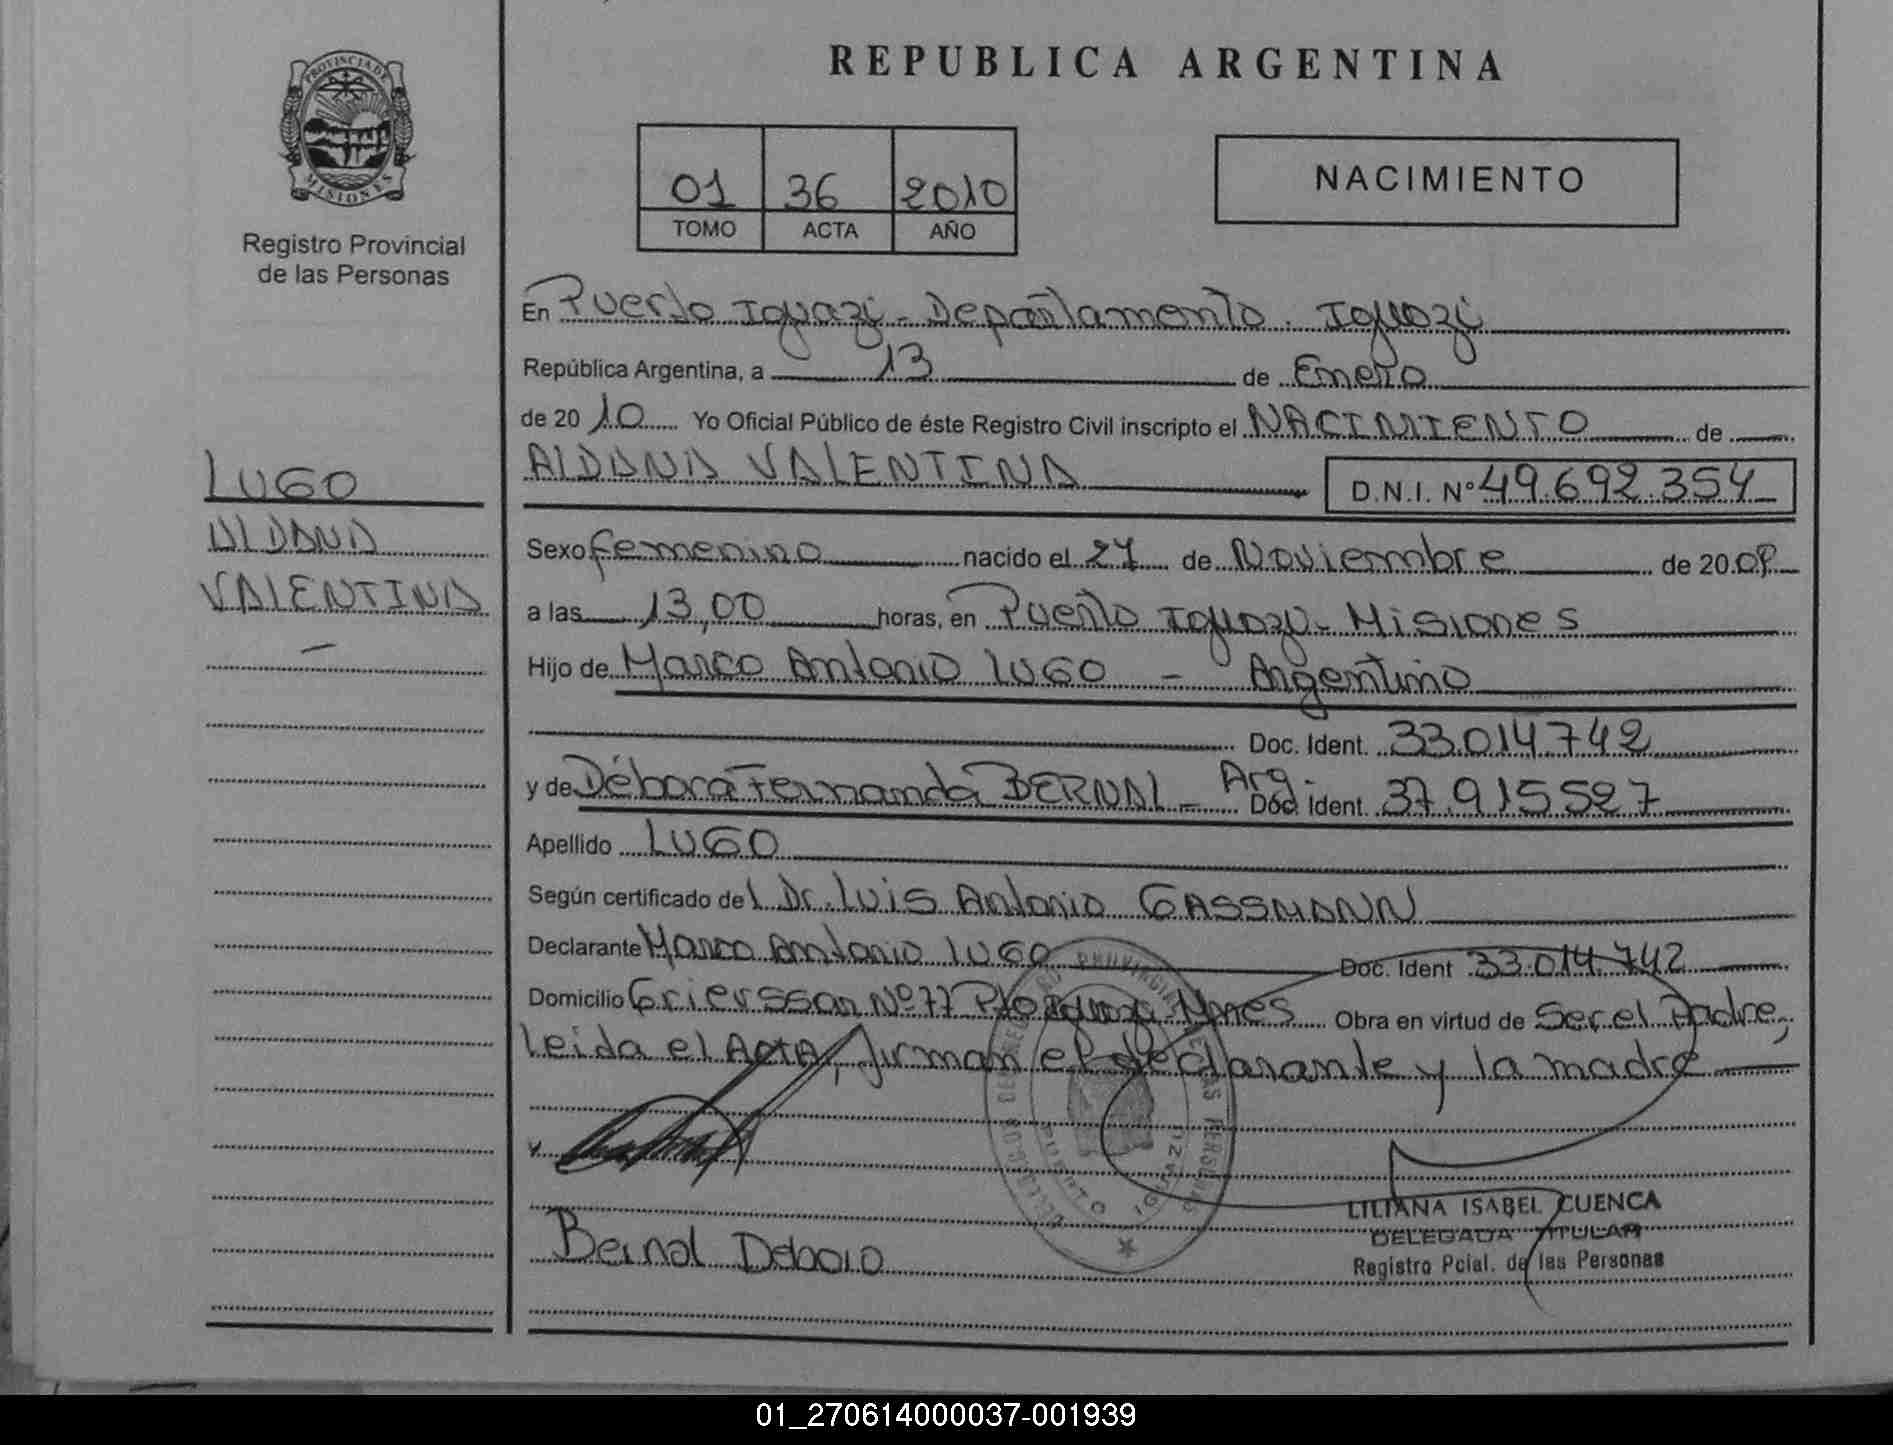 PROVINCIA DE
MISIONES
Registro Provincial
de las Personas
LUGO
ALDANA
VALENTINA
REPUBLICA ARGENTINA
01 36 2010
TOMO ACTA AÑO
NACIMIENTO
En Puerto Iguazú - Departamento Iguazú
República Argentina, a 13 de Enero
de 2010 Yo Oficial Público de éste Registro Civil inscripto el NACIMIENTO de
ALDANA VALENTINA D.N.I. Nº 49.692.354
Sexo femenino nacido el 27 de Noviembre de 2009
a las 13,00 horas, en Puerto Iguazú - Misiones
Hijo de Marco Antonio LUGO - Argentino
Doc. Ident. 33.014.742
y de Débora Fernanda BERNAL - Arg. Doc. Ident. 37.915527
Apellido LUGO
Según certificado del Dr. Luis Antonio GASSMANN
Declarante Marco Antonio LUGO Doc. Ident 33.014.742
Domicilio Grierssan Nº 77 Pto Iguazú - Mnes Obra en virtud de Ser el Padre,
leida el ActA, firman el declarante y la madre
Bernal Debora
LILIANA ISABEL CUENCA
DELEGADA TITULAR
Registro Pcial. de las Personas
01_270614000037-001939